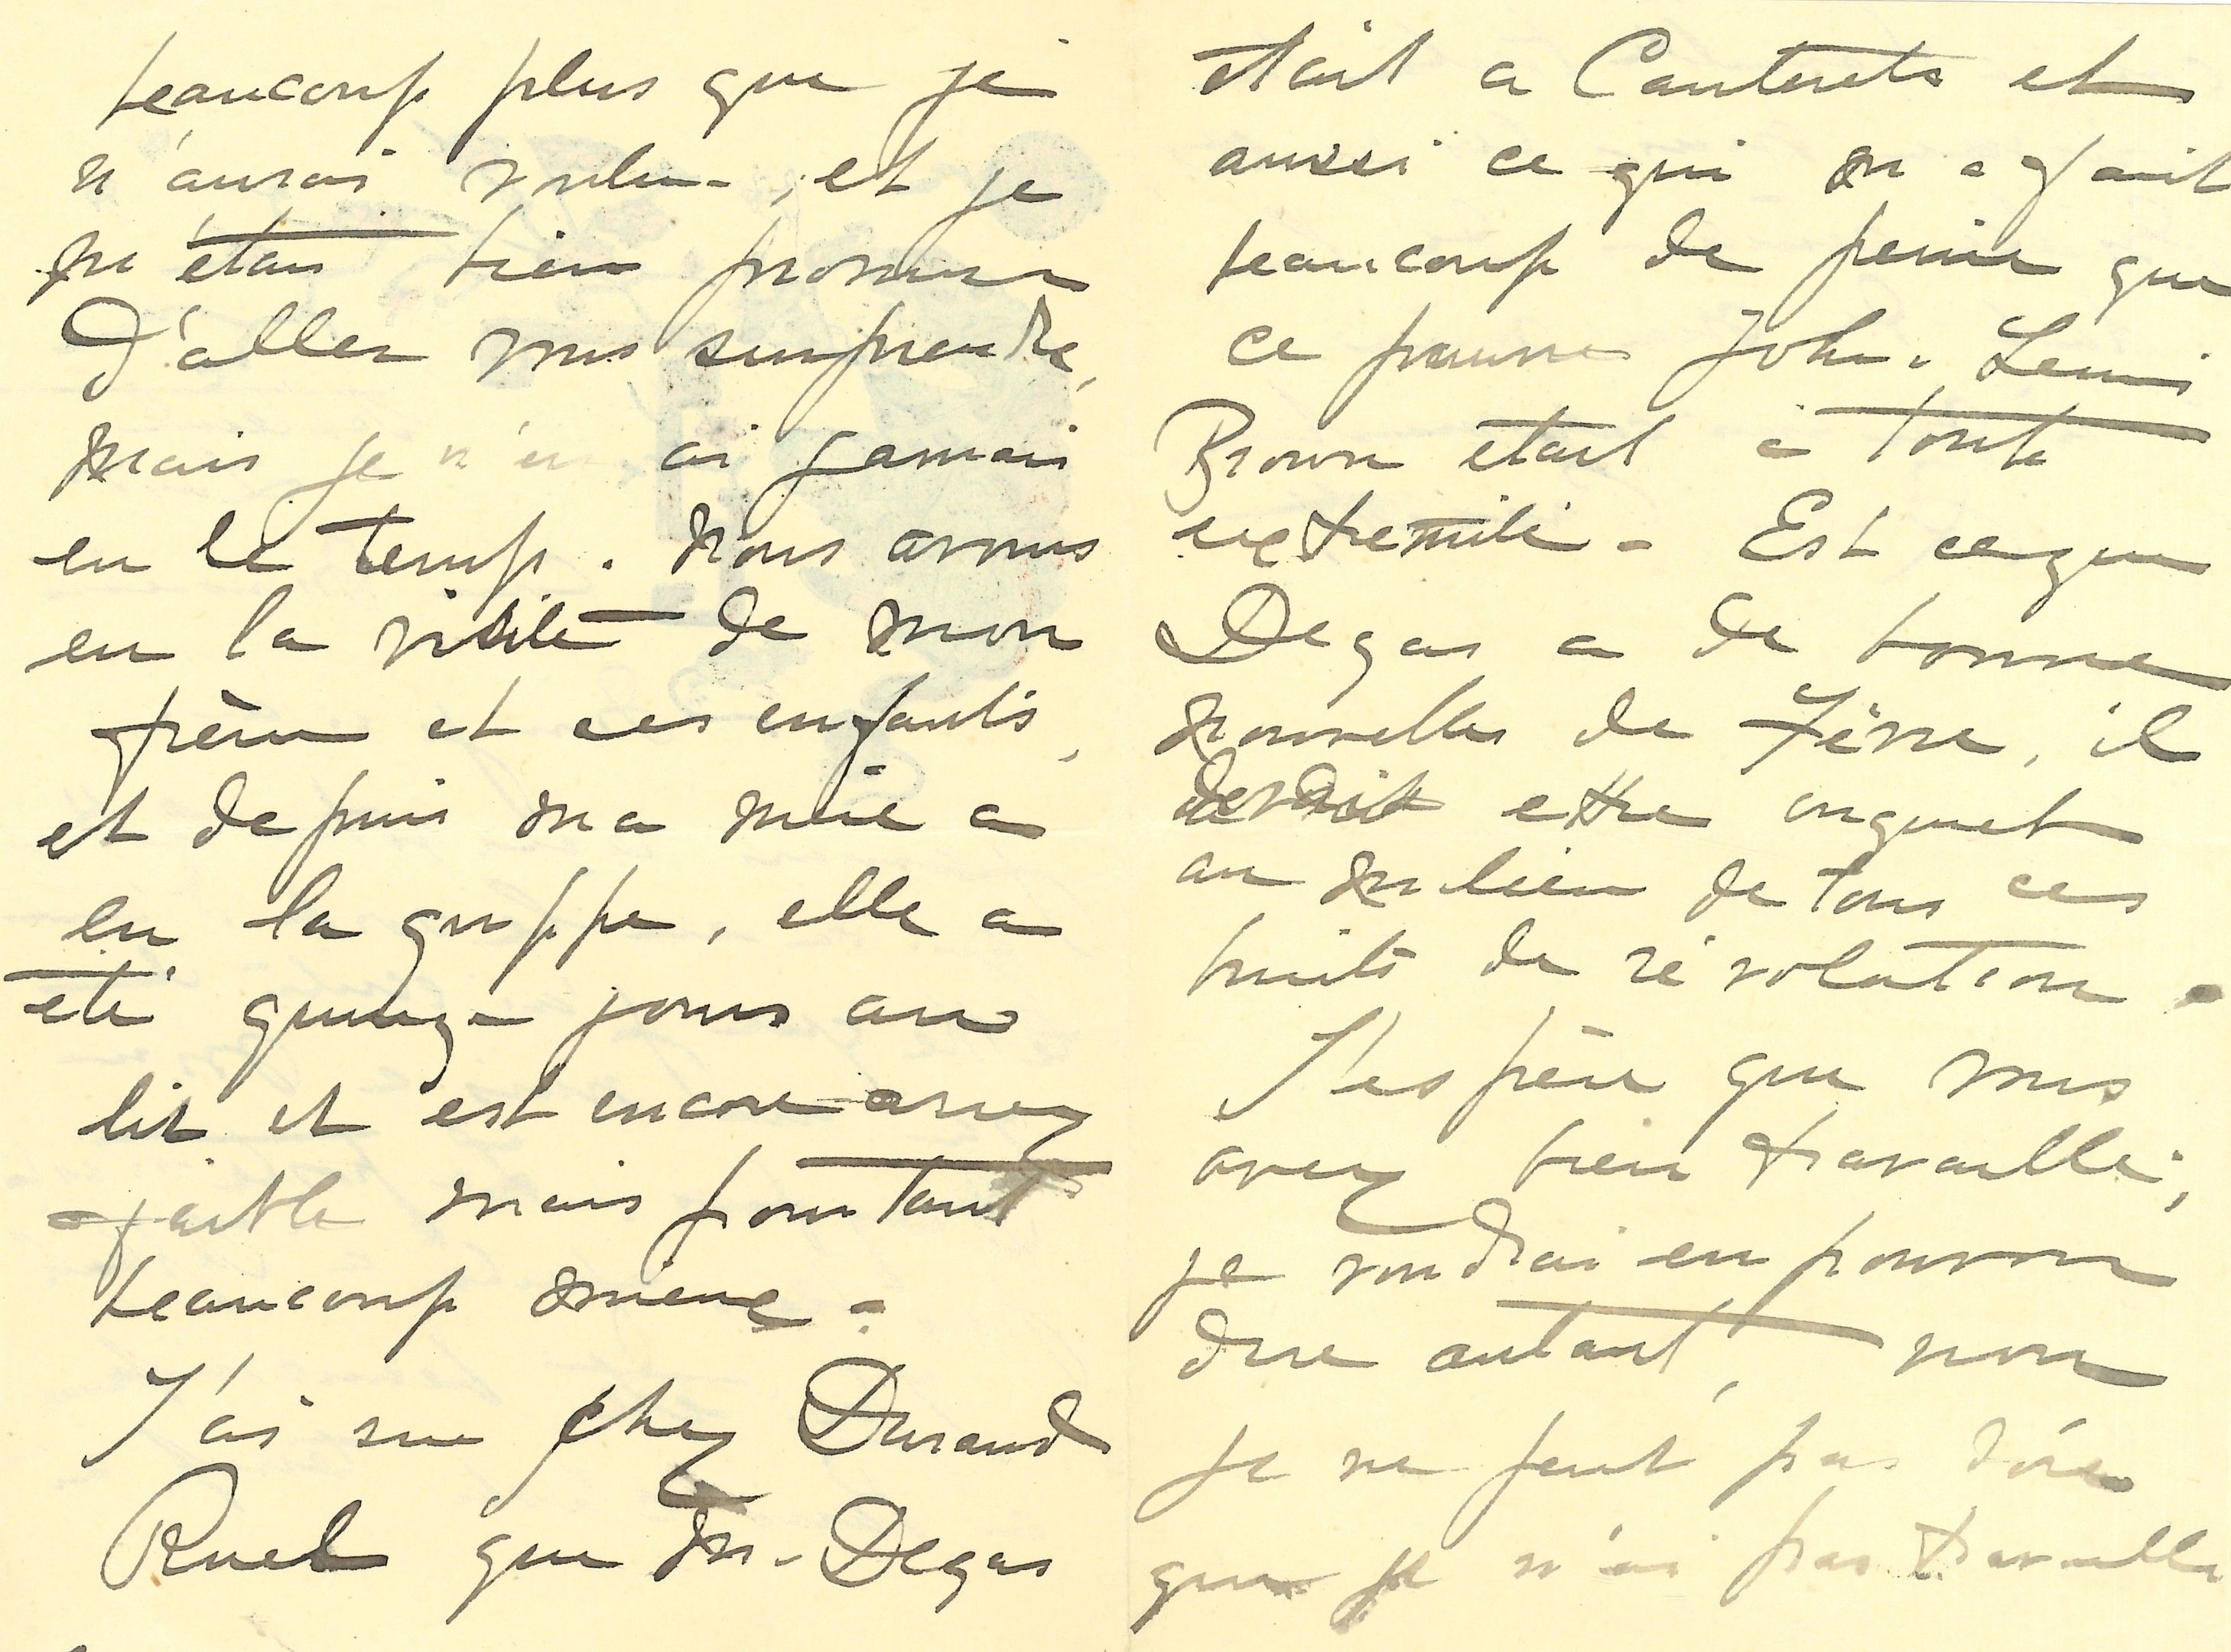 beaucoup plus que je
n'aurai voulu, et je
m'étais bien promise
d'aller vous surprendre,
mais je n'en ai jamais
eu le temp. Nous avons
eu la visite de mon
frère et ses enfants,
et depuis ma mère a
eu la grippe, elle a
été quinze jours au
lit et est encore assez
faible mais pourtant
beaucoup mieux.
J'ai su chez Durand
Ruel que M. Degas
était a Cauterets et
aussi ce qui m'a fait
beaucoup de peine que
ce pauvre John. Lewis
Brown etait à toute
extremité. Est ce que
Degas a de bonne
nouvelles de
devait etre inquiet
au milieu de tous ces
bruits de révolution.
J'espère que vous
avez bien travaillé,
je voudrai en pouvoir
dire autant, non
je ne peut pas dire
que je n'ai pas travaille